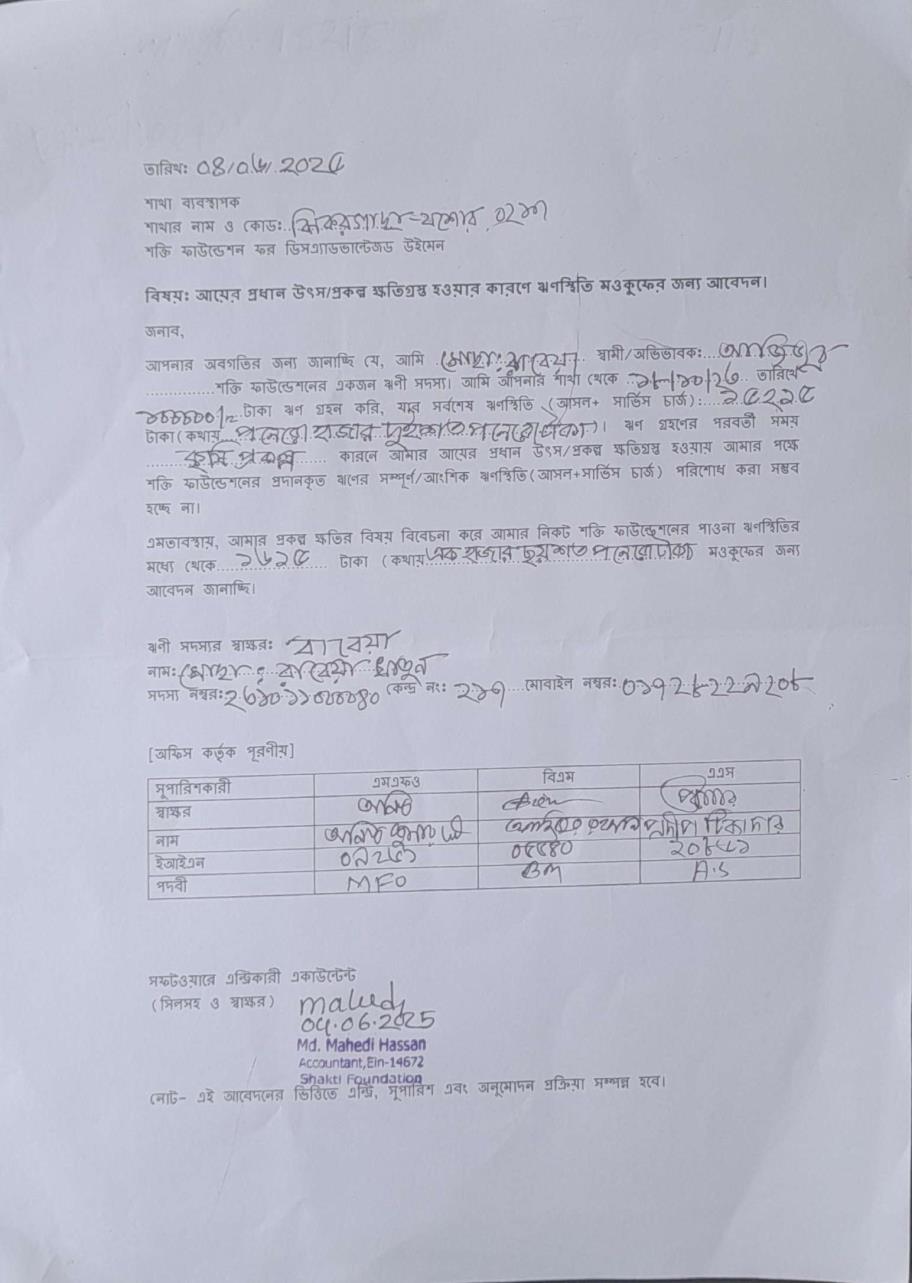 তারিখঃ ০৪/০৬/২০২৫
শাখা ব্যবস্থাপক
শাখার নাম ও কোডঃ ঝিকরগাছা-যশোর, ০২৬৭
শক্তি ফাউন্ডেশন ফর ডিসএ্যাডভান্টেজড উইমেন
বিষয়ঃ আয়ের প্রধান উৎস/প্রকল্প ক্ষতিগ্রস্থ হওয়ার কারণে ঋণস্থিতি মওকুফের জন্য আবেদন।
জনাব,
আপনার অবগতির জন্য জানাচ্ছি যে, আমি মোছাঃ রাবেয়া স্বামী/অভিভাবকঃ
শক্তি ফাউন্ডেশনের একজন ঋণী সদস্য। আমি আপনার শাখা থেকে তারিখে
টাকা ঋণ গ্রহন করি, যার সর্বশেষ ঋণস্থিতি (আসল+ সার্ভিস চার্জ): ১৫২১৫
টাকা (কথায় পনেরো হাজার দুইশত পনেরো টাকা)। ঋণ গ্রহণের পরবর্তী সময়
কৃষি প্রকল্প কারনে আমার আয়ের প্রধান উৎস/প্রকল্প ক্ষতিগ্রস্থ হওয়ায় আমার পক্ষে
শক্তি ফাউন্ডেশনের প্রদানকৃত ঋণের সম্পূর্ণ/আংশিক ঋণস্থিতি (আসল+সার্ভিস চার্জ) পরিশোধ করা সম্ভব
হচ্ছে না।
এমতাবস্থায়, আমার প্রকল্প ক্ষতির বিষয় বিবেচনা করে আমার নিকট শক্তি ফাউন্ডেশনের পাওনা ঋণস্থিতির
মধ্যে থেকে ১৬১৫ টাকা (কথায় এক হাজার ছয়শত পনেরো টাকা) মওকুফের জন্য
আবেদন জানাচ্ছি।
ঋণী সদস্যর স্বাক্ষরঃ রাবেয়া
নামঃ মোছাঃ রাবেয়া খাতুন
সদস্য নম্বরঃ কেন্দ্র নংঃ মোবাইল নম্বরঃ
[অফিস কর্তৃক পূরনীয়]
সুপারিশকারী এমএফও বিএম এএস
স্বাক্ষর অসিত
নাম অসিত কুমার প্রদীপ টিকাদার
ইআইএন ০৫৫৪০
পদবী MFO BM A.S
সফটওয়ারে এন্ট্রিকারী একাউন্টেন্ট
(সিলসহ ও স্বাক্ষর) mahedi
04.06.2025
Md. Mahedi Hassan
Accountant,Ein-14672
Shakti Foundation
নোট- এই আবেদনের ভিত্তিতে এন্ট্রি, সুপারিশ এবং অনুমোদন প্রক্রিয়া সম্পন্ন হবে।